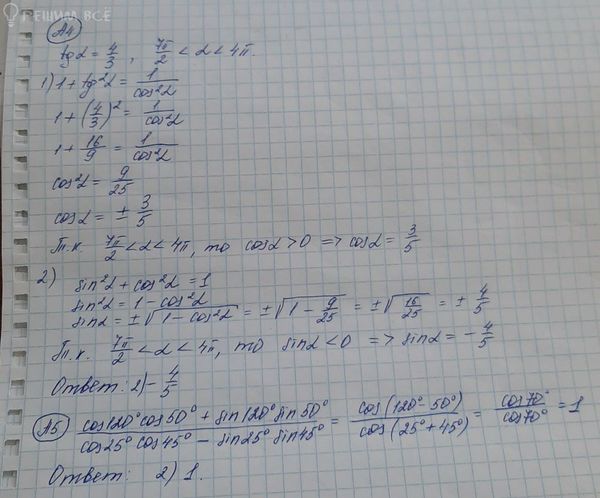 РЕШИМ ВСЁ
А4
tgα = 4/3, 7π/2 < α < 4π.
1) 1 + tg²α = 1/cos²α
1 + (4/3)² = 1/cos²α
1 + 16/9 = 1/cos²α
cos²α = 9/25
cosα = ± 3/5
Т.к. 7π/2 < α < 4π, то cosα > 0 => cosα = 3/5
2) sin²α + cos²α = 1
sin²α = 1 - cos²α
sinα = ±√(1 - cos²α) = ±√(1 - 9/25) = ±√(16/25) = ± 4/5
Т.к. 7π/2 < α < 4π, то sinα < 0 => sinα = - 4/5
Ответ: 2) - 4/5
А5 (cos120° cos50° + sin120° sin50°)/(cos25° cos45° - sin25° sin45°) = cos(120° - 50°)/cos(25° + 45°) = cos70°/cos70° = 1
Ответ: 2) 1.